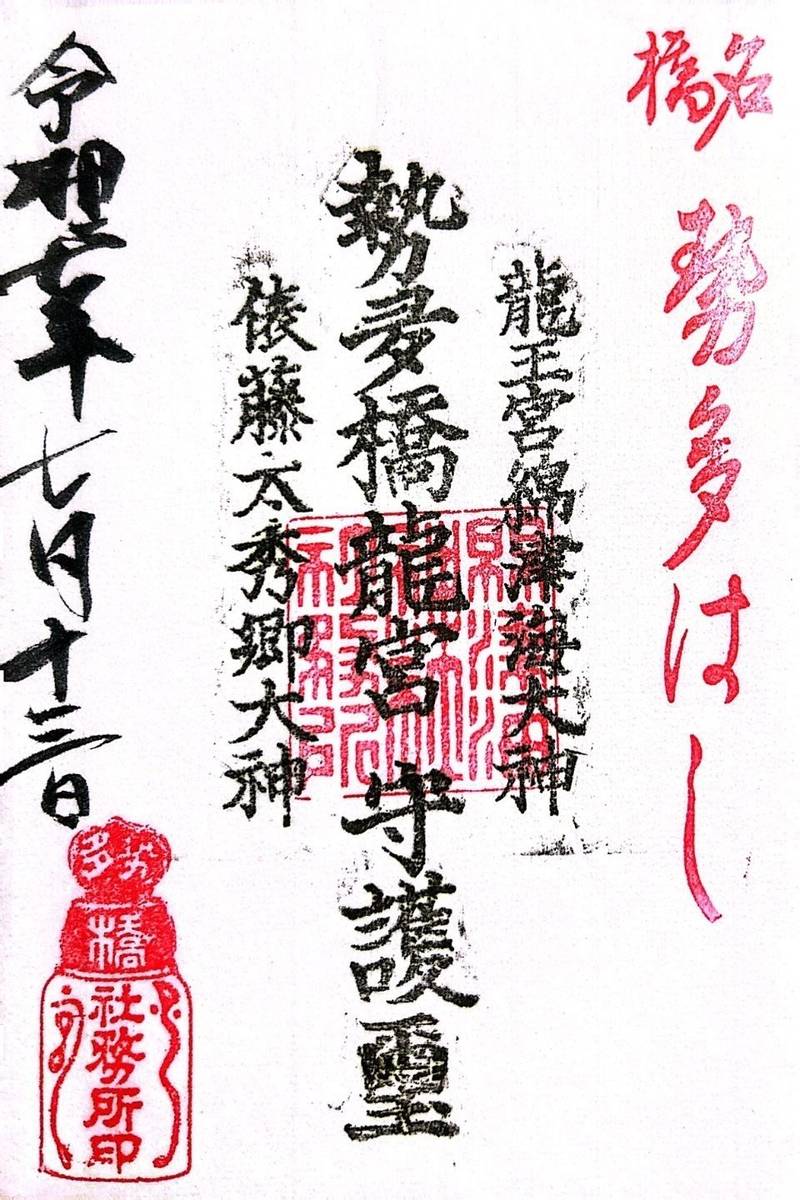 名橋
勢多はし
龍王宮綿津海大神
勢多橋龍宮 守護璽
俵藤太秀郷大神
令和七年七月十三日
勢多
橋
社務所印